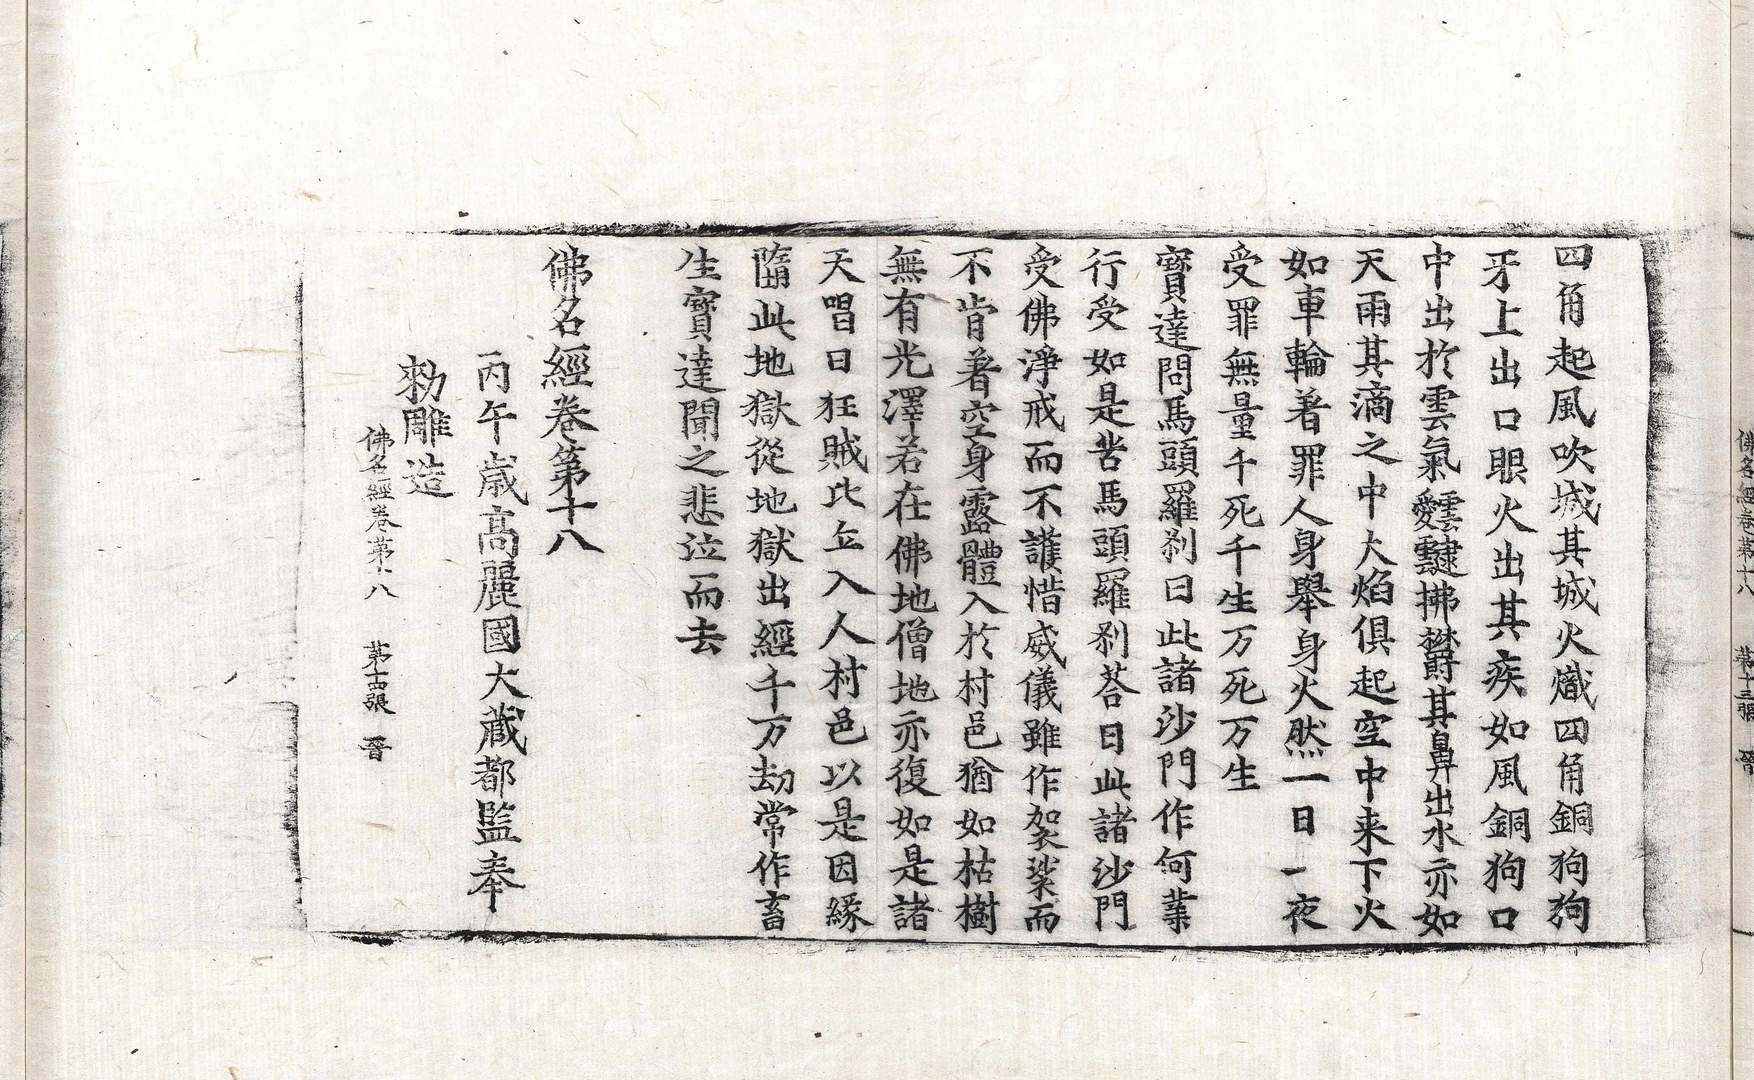 四角起風吹城其城火熾四角銅狗狗
牙上出口眼火出其疾如風銅狗口
中出於雲氣靉靆拂欝其鼻出水亦如
天雨其滴之中大焰俱起空中来下火
如車輪著罪人身舉身火然一日一夜
受罪無量千死千生万死万生
寶達問馬頭羅刹曰此諸沙門作何業
行受如是苦馬頭羅刹荅曰此諸沙門
受佛淨戒而不護惜威儀雖作袈裟而
不肯著空身露體入於村邑猶如枯樹
無有光澤若在佛地僧地亦復如是諸
天唱曰狂賊比丘入人村邑以是因緣
墮此地獄從地獄出經千万劫常作畜
生寶達聞之悲泣而去
佛名經卷第十八
丙午歳高麗國大藏都監奉
勑雕造
佛名經卷第十八 第十四張 晉
佛名經卷第十八 第十三張 晉